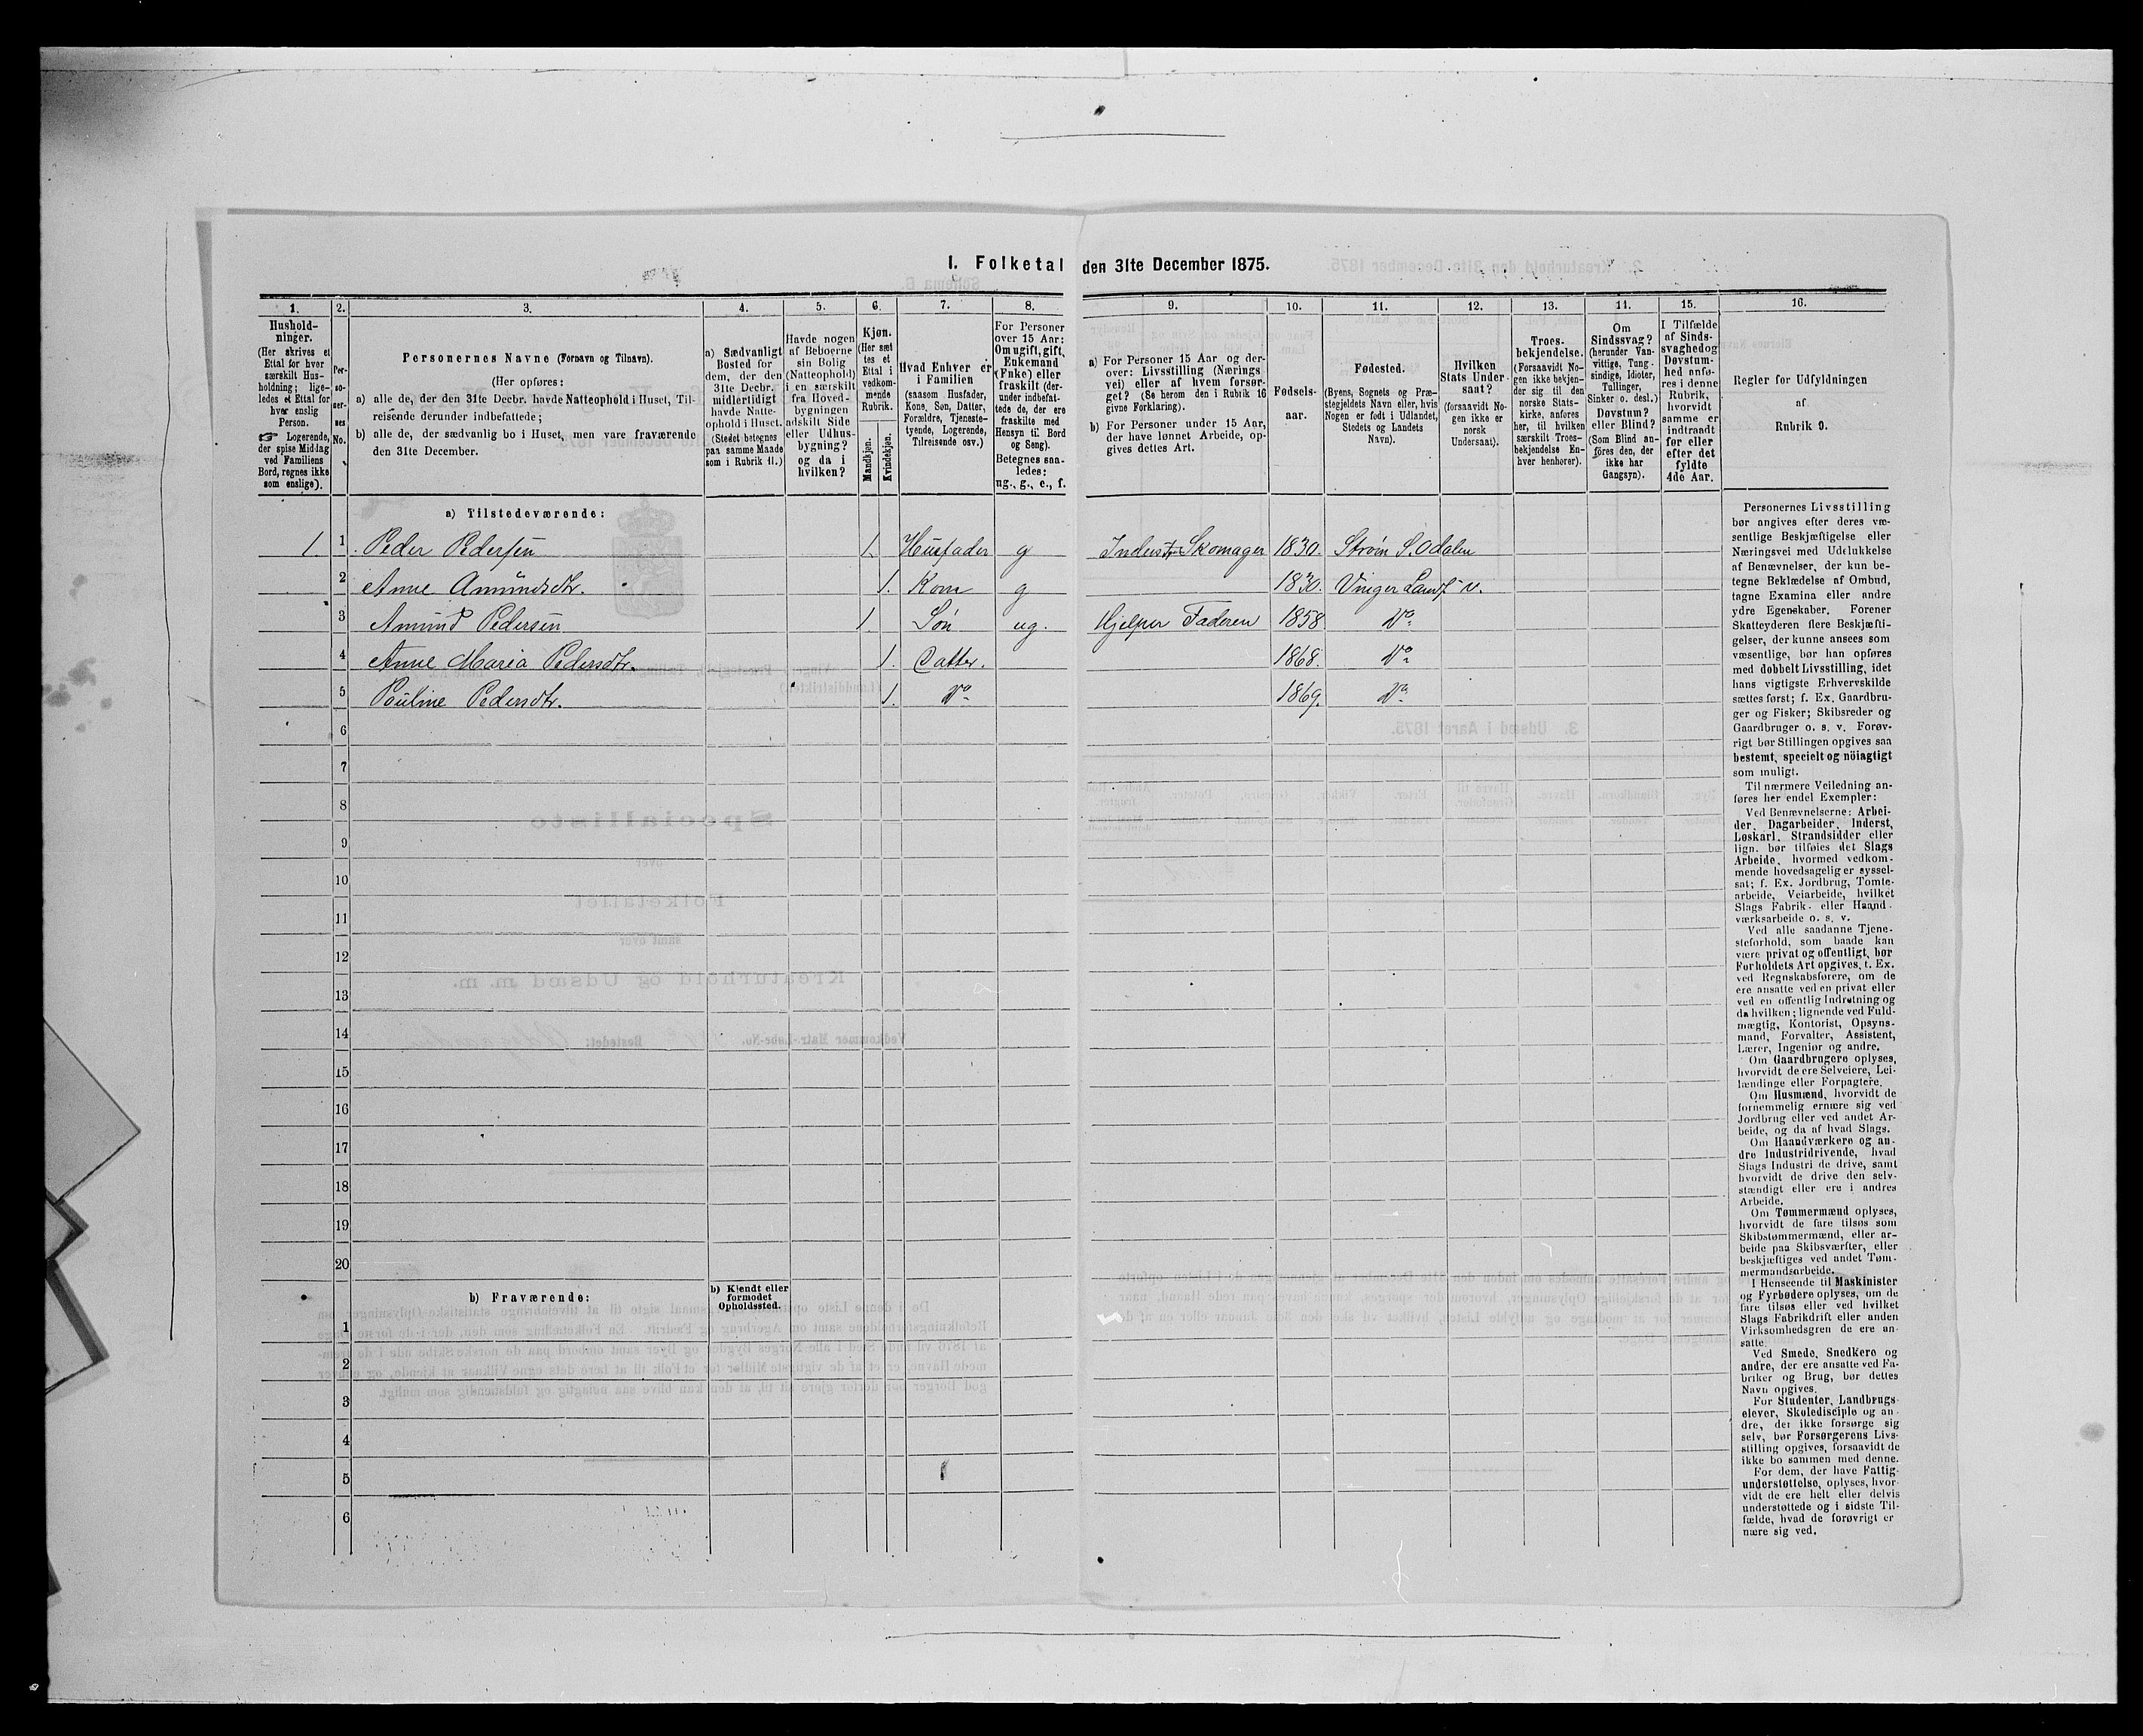 I. Folketal den 31te December 1875.
1. 2. 3. 4. 5. 6. 7. 8. 9. 10. 11. 12. 13. 14. 15. 16.
Hushold-
ninger.
(Her skrives et
Ettal for hver
særskilt Hus-
holdning; lige-
ledes et Ettal for
hver enslig
Person.
☞ Logerende,
der spise Middag
ved Familiens
Bord, regnes ikke
som enslige).
Per-
so-
ner-
nes
No.
Personernes Navne (Fornavn og Tilnavn).
(Her opføres:
a) alle de, der den 31te Decbr. havde Natteophold i Huset, Til-
reisende derunder indbefattede;
b) alle de, der sædvanlig bo i Huset, men vare fraværende
den 31te December.
a) Sædvanligt
Bosted for
dem, der den
31te Decbr.
midlertidigt
havde Natte-
ophold i Huset.
(Stedet betegnes
paa samme Maade
som i Rubrik 11.)
Havde nogen
af Beboerne
sin Bolig
(Natteophold)
i en særskilt
fra Hoved-
bygningen
adskilt Side
eller Udhus-
bygning?
og da i
hvilken?
Kjøn.
(Her sæt
tes et
Ettal i
vedkom-
mende
Rubrik.
Mandkjøn.
Kvindekjøn.
Hvad Enhver er
i Familien
(saasom Husfader,
Kone, Søn, Datter,
Forældre, Tjeneste-
tyende, Logerende,
Tilreisende osv.)
For Personer
over 15 Aar:
Om ugift, gift,
Enkemand
(Enke) eller
fraskilt (der-
under indbefat-
tede de, der ere
fraskilte med
Hensyn til Bord
og Seng).
Betegnes saa-
ledes:
ug., g., e., f.
a) For Personer 15 Aar og der-
over: Livsstilling (Nærings
vei) eller af hvem forsør-
get? (Se herom den i Rubrik 16
givne Forklaring).
b) For Personer under 15 Aar,
der have lønnet Arbeide, op-
gives dettes Art.
Fødsels-
aar.
Fødested.
(Byens, Sognets og Præ-
stegjeldets Navn eller, hvis
Nogen er født i Udlandet,
Stedets og Landets
Navn).
Hvilken
Stats Under-
saat?
(forsaavidt No-
gen ikke er
norsk
Undersaat).
Troes-
bekjendelse.
(Forsaavidt No-
gen ikke bekjen-
der sig til den
norske Stats-
kirke, anføres
her, til hvilken
særskilt Troes-
bekjendelse En-
hver henhører).
Om
Sindssvag?
(herunder Van-
vittige, Tung-
sindige, Idioter,
Tullinger,
Sinker o. desl.)
Døvstum?
eller Blind?
(Som Blind an-
føres den, der
ikke har
Gangsyn).
I Tilfælde
af Sinds-
svaghed og
Døvstum-
hed anfø-
res i denne
Rubrik,
hvorvidt
samme er
indtraadt
før eller
efter det
fyldte
4de Aar.
Regler for Udfyldningen
af
Rubrik 9.
a) Tilstedeværende:
1 1 Peder Pedersen 1. Husfader g Inderst Skomager 1830. Strøm S. Odalen
2 Anne Amundsdtr. 1. Kone g 1830. Vinger Landf. v.
3 Amund Pedersen 1. Søn ug. Hjelper Faderen 1858 Do
4 Anne Maria Pedersdtr. 1. Datter. 1868. Do
5 Pauline Pedersdtr. 1. Do 1869. Do
6
7
8
9
10
11
12
13
14
15
16
17
18
19
20
b) Fraværende:
b) Kjendt eller
formodet
Opholdssted.
1
2
3
4
5
6
Personernes Livsstilling
bør angives efter deres væ-
sentlige Beskjæftigelse eller
Næringsvei med Udelukkelse
af Benævnelser, der kun be-
tegne Beklædelse af Ombud,
tagne Examina eller andre
ydre Egenskaber. Forener
Skatteyderen flere Beskjæfti-
gelser, der kunne ansees som
væsentlige, bør han opføres
med dobbelt Livsstilling, idet
hans vigtigste Erhvervskilde
sættes først; f. Ex. Gaardbru-
ger og Fisker; Skibsreder og
Gaardbruger o. s. v. Forøv-
rigt bør Stillingen opgives saa
bestemt, specielt og nöiagtigt
som muligt.
Til nærmere Veiledning an-
føres her endel Exempler:
Ved Benævnelserne: Arbei-
der, Dagarbeider, Inderst,
Løskarl, Strandsidder eller
lign. bør tilføies det Slags
Arbeide, hvormed vedkom-
mende hovedsagelig er syssel-
sat; f. Ex. Jordbrug, Tomte-
arbeide, Veiarbeide, hvilket
Slags Fabrik- eller Haand-
værksarbeide o. s. v.
Ved alle saadanne Tjene-
steforhold, som baade kan
være privat og offentligt, bør
Forholdets Art opgives, t. Ex.
ved Regnskabsførere, om de
ere ansatte ved en privat eller
ved en offentlig Indretning og
da hvilken; lignende ved Fuld-
mægtig, Kontorist, Opsyns-
mand, Forvalter, Assistent,
Lærer, Ingeniør og andre.
Om Gaardbrugere oplyses,
hvorvidt de ere Selveiere, Lei-
lændinge eller Forpagtere.
Om Husmænd, hvorvidt de
fornemmelig ernære sig ved
Jordbrug eller ved andet Ar-
beide, og da af hvad Slags.
Om Haandværkere og an-
dre Industridrivende, hvad
Slags Industri de drive, samt
hvorvidt de drive den selv-
stændigt eller ere i andres
Arbeide.
Om Tømmermænd oplyses,
hvorvidt de fare tilsøs som
Skibstømmermænd, eller ar-
beide paa Skibsværfter, eller
beskjæftiges ved andet Tøm-
mermandsarbeide.
I Henseende til Maskinister
og Fyrbødere oplyses, om de
fare tilsøs eller ved hvilket
Slags Fabrikdrift eller anden
Virksomhedsgren de ere an-
satte.
Ved Smede, Snedkere og
andre, der ere ansatte ved Fa-
briker og Brug, bør dettes
Navn opgives.
For Studenter, Landbrugs-
elever, Skoledisciple og an-
dre, der ikke forsørge sig
selv, bør Forsørgerens Livs-
stilling opgives, forsaavidt de
ikke bo sammen med denne.
For dem, der have Fattig-
understøttelse, oplyses, hvor-
vidt de ere helt eller delvis
understøttede og i sidste Til-
fælde, hvad de forøvrigt er
nære sig ved.